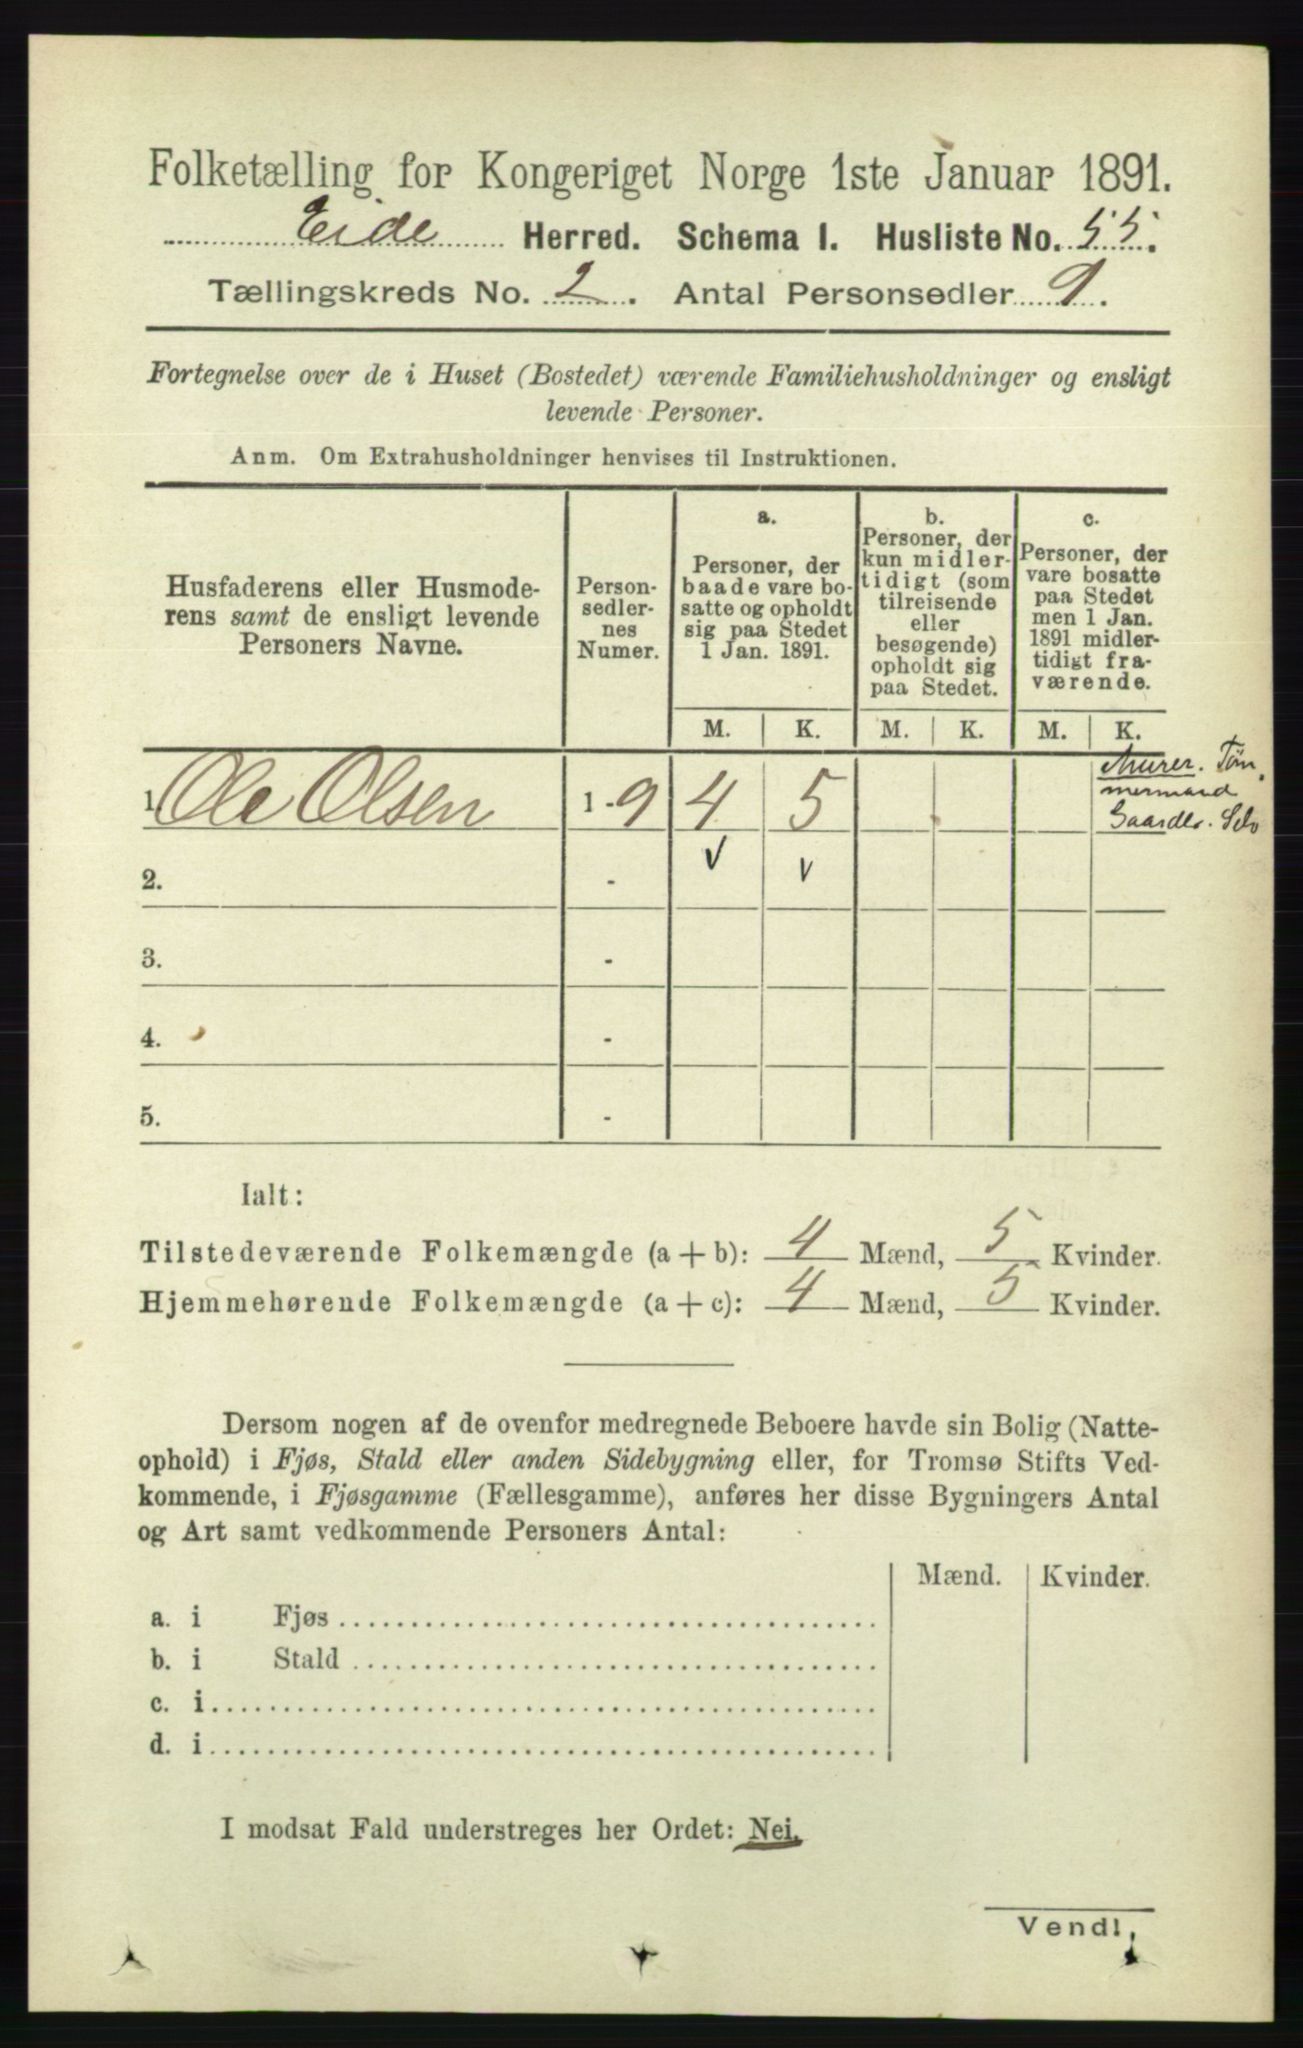 Folketælling for Kongeriget Norge 1ste Januar 1891.
Eide Herred. Schema I. Husliste No. 55.
Tællingskreds No. 2. Antal Personsedler 9.
Fortegnelse over de i Huset (Bostedet) værende Familiehusholdninger og ensligt
levende Personer.
Anm. Om Extrahusholdninger henvises til Instruktionen.
Husfaderens eller Husmode-
rens samt de ensligt levende
Personers Navne.
Person-
sedler-
nes
Numer.
a.
Personer, der
baade vare bo-
satte og opholdt
sig paa Stedet
1 Jan. 1891.
b.
Personer, der
kun midler-
tidigt (som
tilreisende
eller
besøgende)
opholdt sig
paa Stedet.
c.
Personer, der
vare bosatte
paa Stedet
men 1 Jan.
1891 midler-
tidigt fra-
værende.
M. K. M. K. M. K.
1 Ole Olsen 1 - 9 4 5
Murer. Töm
mermand
Gaardbr. Selv
2. -
3. -
4. -
5. -
Ialt:
Tilstedeværende Folkemængde (a + b): 4 Mænd, 5 Kvinder.
Hjemmehørende Folkemængde (a + c): 4 Mænd, 5 Kvinder.
Dersom nogen af de ovenfor medregnede Beboere havde sin Bolig (Natte-
ophold) i Fjøs, Stald eller anden Sidebygning eller, for Tromsø Stifts Ved-
kommende, i Fjøsgamme (Fællesgamme), anføres her disse Bygningers Antal
og Art samt vedkommende Personers Antal:
Mænd. Kvinder.
a. i Fjøs
b. i Stald
c. i
d. i
I modsat Fald understreges her Ordet: Nei.
Vend!